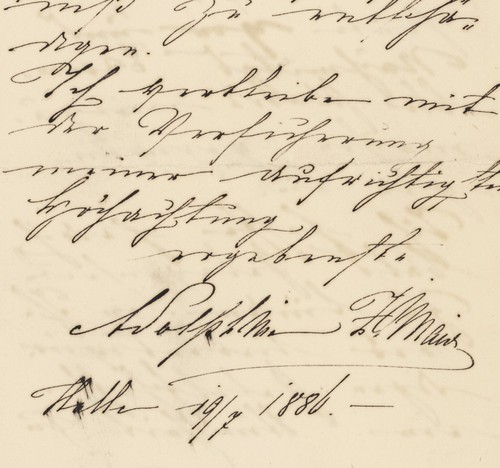 zu entschä-
digen.
Ich verbleibe mit
der Versicherung
meiner aufrichtigsten
Hochachtung
ergebenste
Adolphine
19/7 1886. —